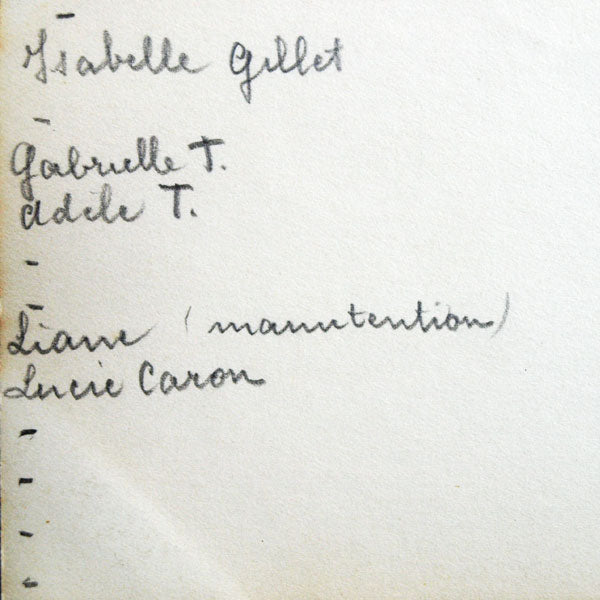 -
Isabelle Gillet
-
Gabrielle T.
Adèle T.
-
-
Liane (manutention)
Lucie Caron
-
-
-
-